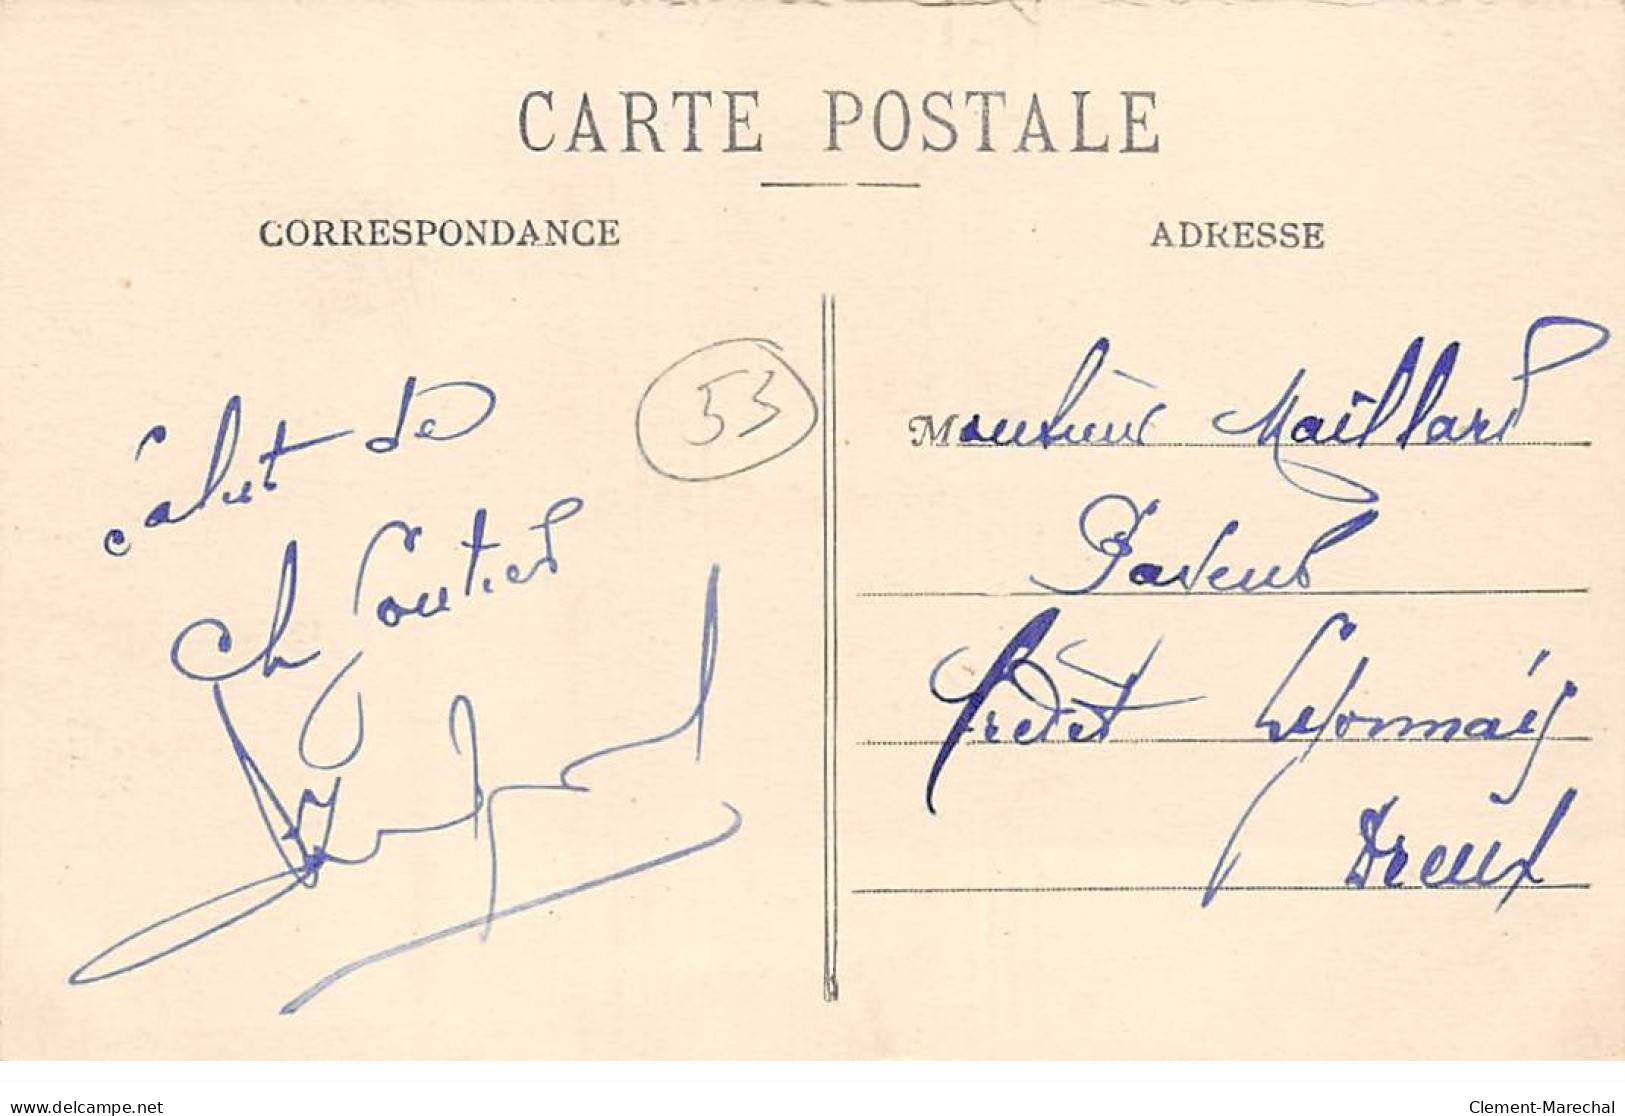 CARTE POSTALE
CORRESPONDANCE
ADRESSE
53
Salut de
Ch Gontier
Monsieur Maillard
Payeur
Crédit Lyonnais
Dreux
delcampe.net
Clement-Marechal